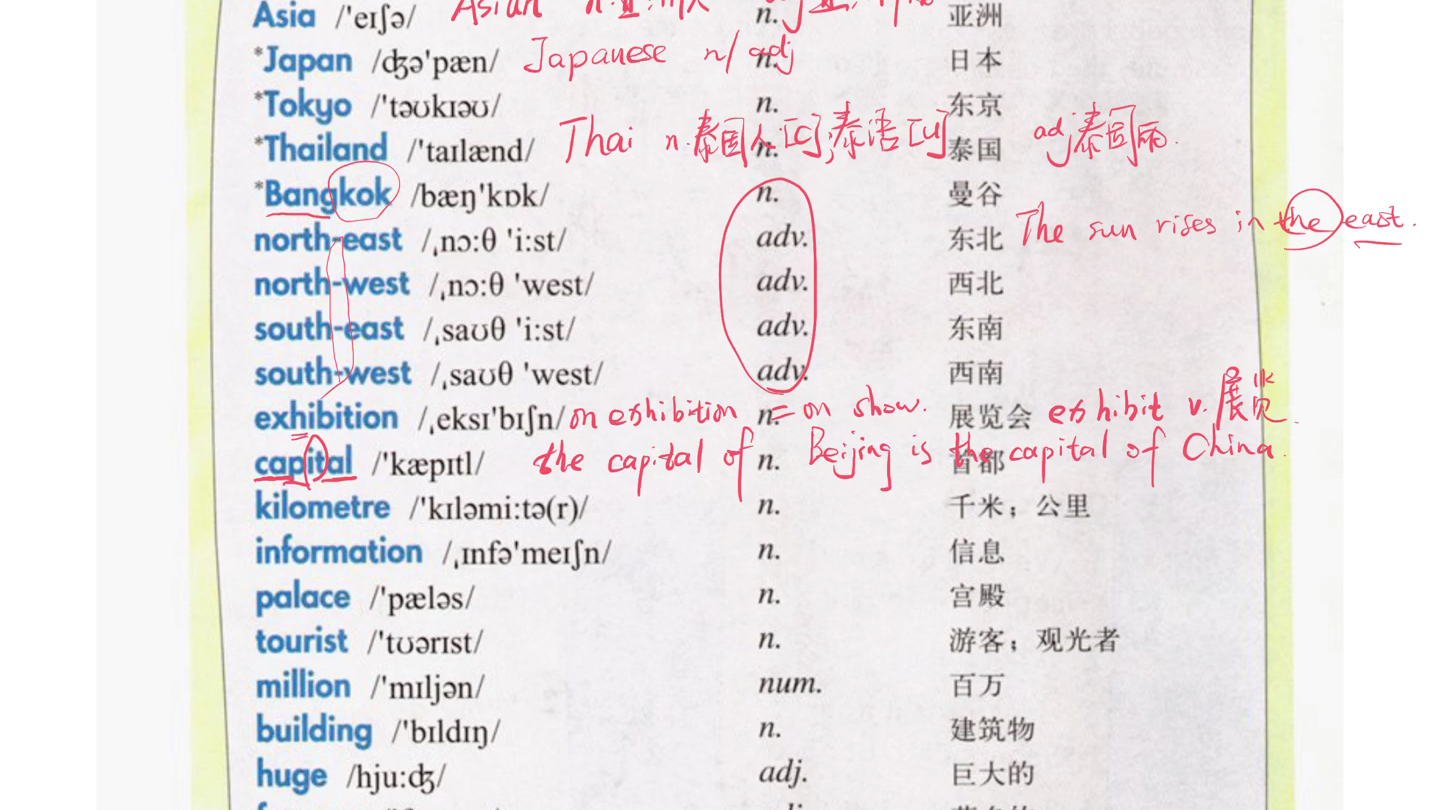 Asia /'eɪʃə/ Asian n. n. 亚洲
*Japan /ʤə'pæn/ Japanese n/adj n. 日本
*Tokyo /'təʊkɪəʊ/ n. 东京
*Thailand /'taɪlænd/ Thai n.泰国人[C];泰语[U] n. 泰国 adj泰国的.
*Bangkok /bæŋ'kɒk/ n. 曼谷
north-east /ˌnɔ:θ 'i:st/ adv. 东北 The sun rises in the east.
north-west /ˌnɔ:θ 'west/ adv. 西北
south-east /ˌsaʊθ 'i:st/ adv. 东南
south-west /ˌsaʊθ 'west/ adv. 西南
exhibition /ˌeksɪ'bɪʃn/ on exhibition n. = on show. 展览会 exhibit v.展览.
capital /'kæpɪtl/ the capital of n. Beijing is the capital of China. 首都
kilometre /'kɪləmi:tə(r)/ n. 千米；公里
information /ˌɪnfə'meɪʃn/ n. 信息
palace /'pæləs/ n. 宫殿
tourist /'tʊərɪst/ n. 游客；观光者
million /'mɪljən/ num. 百万
building /'bɪldɪŋ/ n. 建筑物
huge /hju:ʤ/ adj. 巨大的